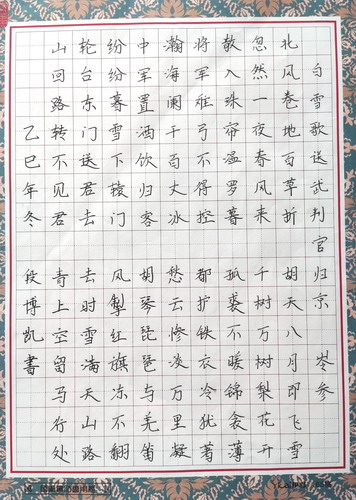 白雪歌送武判官归京 岑参
北风卷地百草折 胡天八月即飞雪
忽然一夜春风来 千树万树梨花开
散入珠帘湿罗暮 孤裘不暖锦衾薄
将军难弓不得控 都护铁衣冷犹著
瀚海阑干百丈冰 愁云惨淡万里凝
中军置酒饮归客 胡琴琵琶与羌笛
纷纷暮雪下辕门 风掣红旗冻不翻
轮台东门送君去 去时雪满天山路
山回路转不见君 青上空留马行处
乙巳年冬 段博凯書